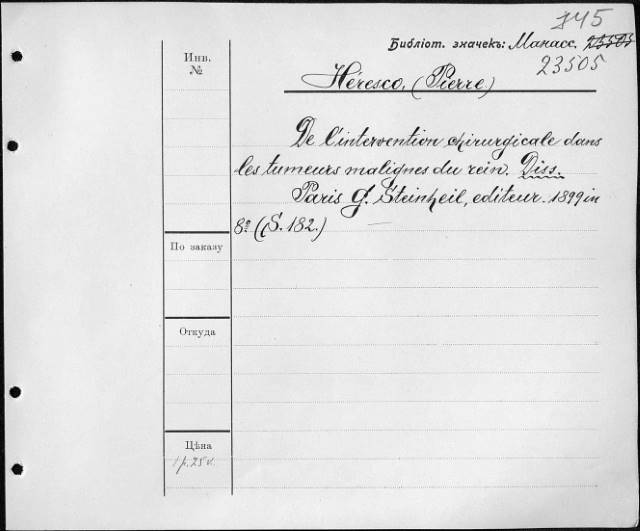 745
Библіот. значекъ: Манасс. 23505
23505
Инв.
№
Héresco, (Pierre)
De l'intervention chirurgicale dans
les tumeurs malignes du rein. Diss.
Paris G. Steinheil, editeur. 1899 in
8º (S. 182.)
По заказу
Откуда
Цѣна
1 р. 25 к.